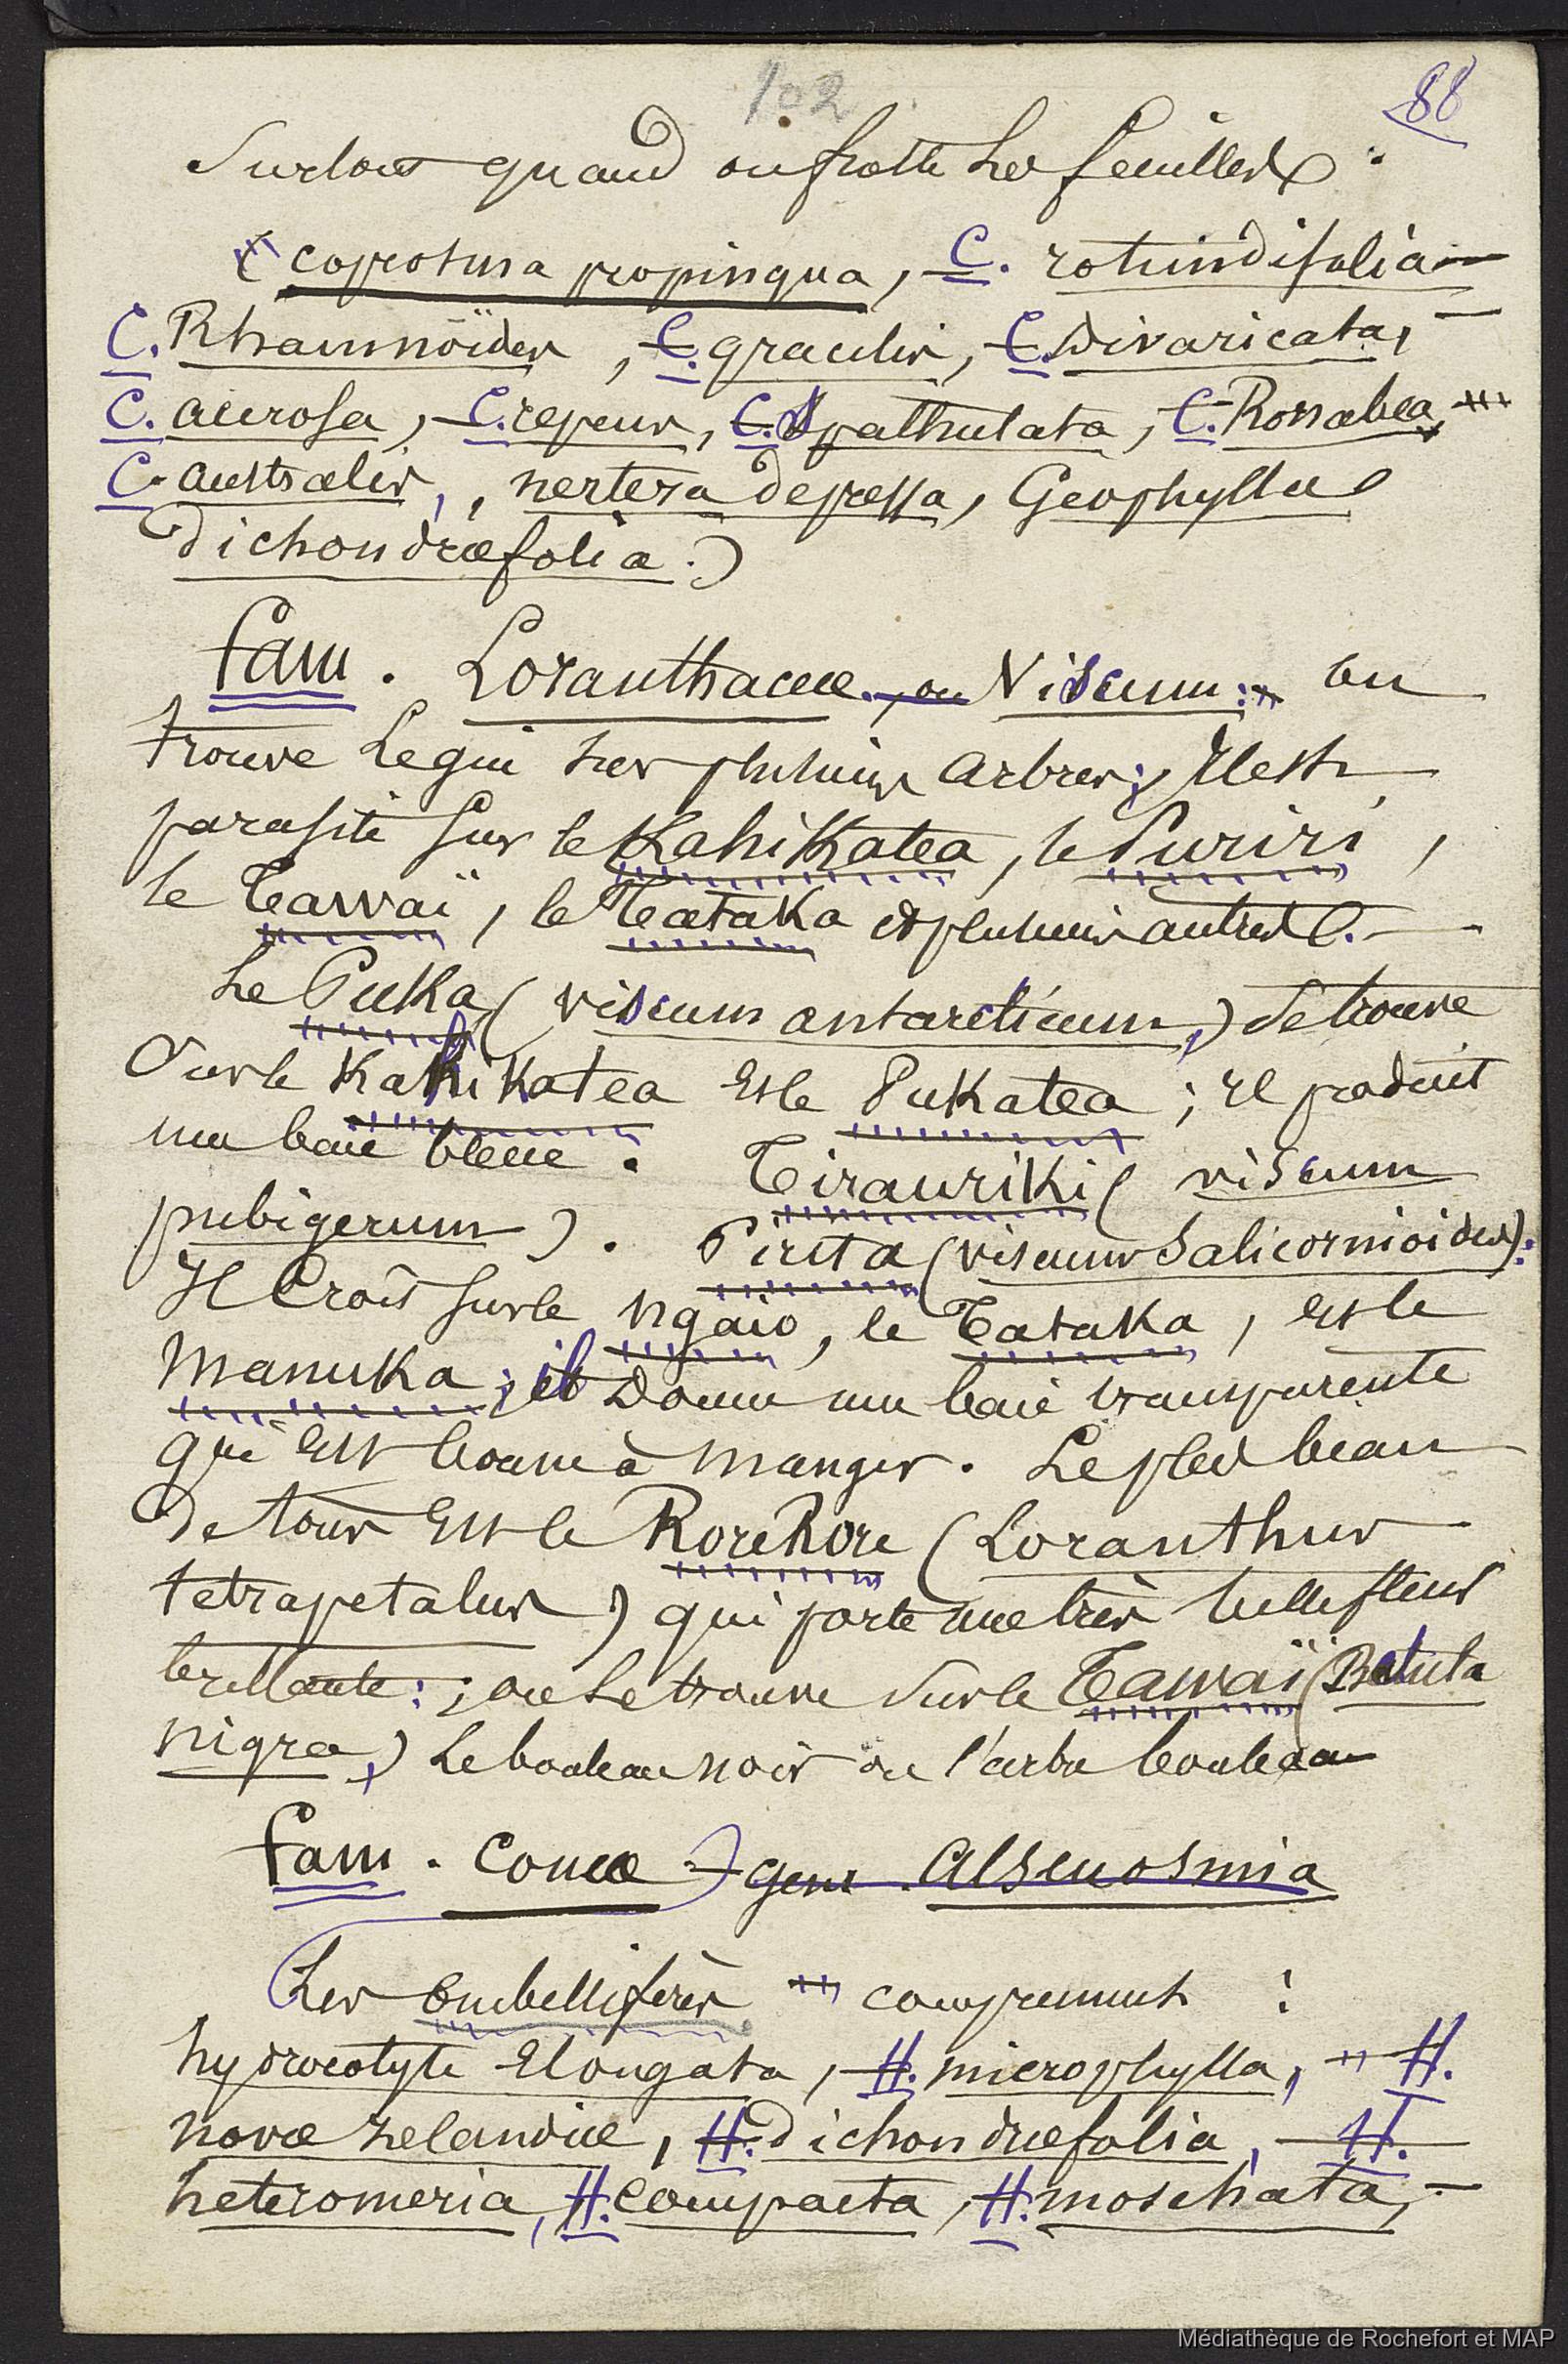 102
88
Surtout quand on frotte les feuilles.
(coprosma propinqua, C. rotundifolia
C. Rhamnoïdes, C. gracilis, C. Divaricata,
C. acerosa, C. repens, C. Spathulata, C. Ronabea,
C. australis, nertera depressa, Geophylla
dichondræfolia.)
fam. Loranthaceæ, ou Viscum: on
trouve Le gui sur plusieurs arbres; Il est
parasite sur le KahiKatea, le Puriri,
le Tawaï, le TataKa et plusieurs autres.
Le PuKa (viscum antarcticum,) se trouve
Sur le KahiKatea et le PuKatea; il produit
une baie bleue. TirauriKi (viscum
pubigerum). Pirita (viscum Salicornioïdes):
Il Croît sur le ngaio, le TataKa, et le
ManuKa; il Donne une baie transparente
qui est bonne à manger. Le plus beau
de tous est le RoreRore (Loranthus
tetrapetalus) qui porte une très belle fleur
brillante: ; on le trouve sur le Tawaï (Betula
nigra,) Le bouleau noir ou l'arbre bouleau
fam. Corneæ gens. Alseuosmia
Les ombellifères comprennent :
hydrocotyle Elongata, H. microphylla, H.
novæ zelandiæ, H. dichondræfolia, H.
heteromeria, H. compacta, H. moschata,
Médiathèque de Rochefort et MAP